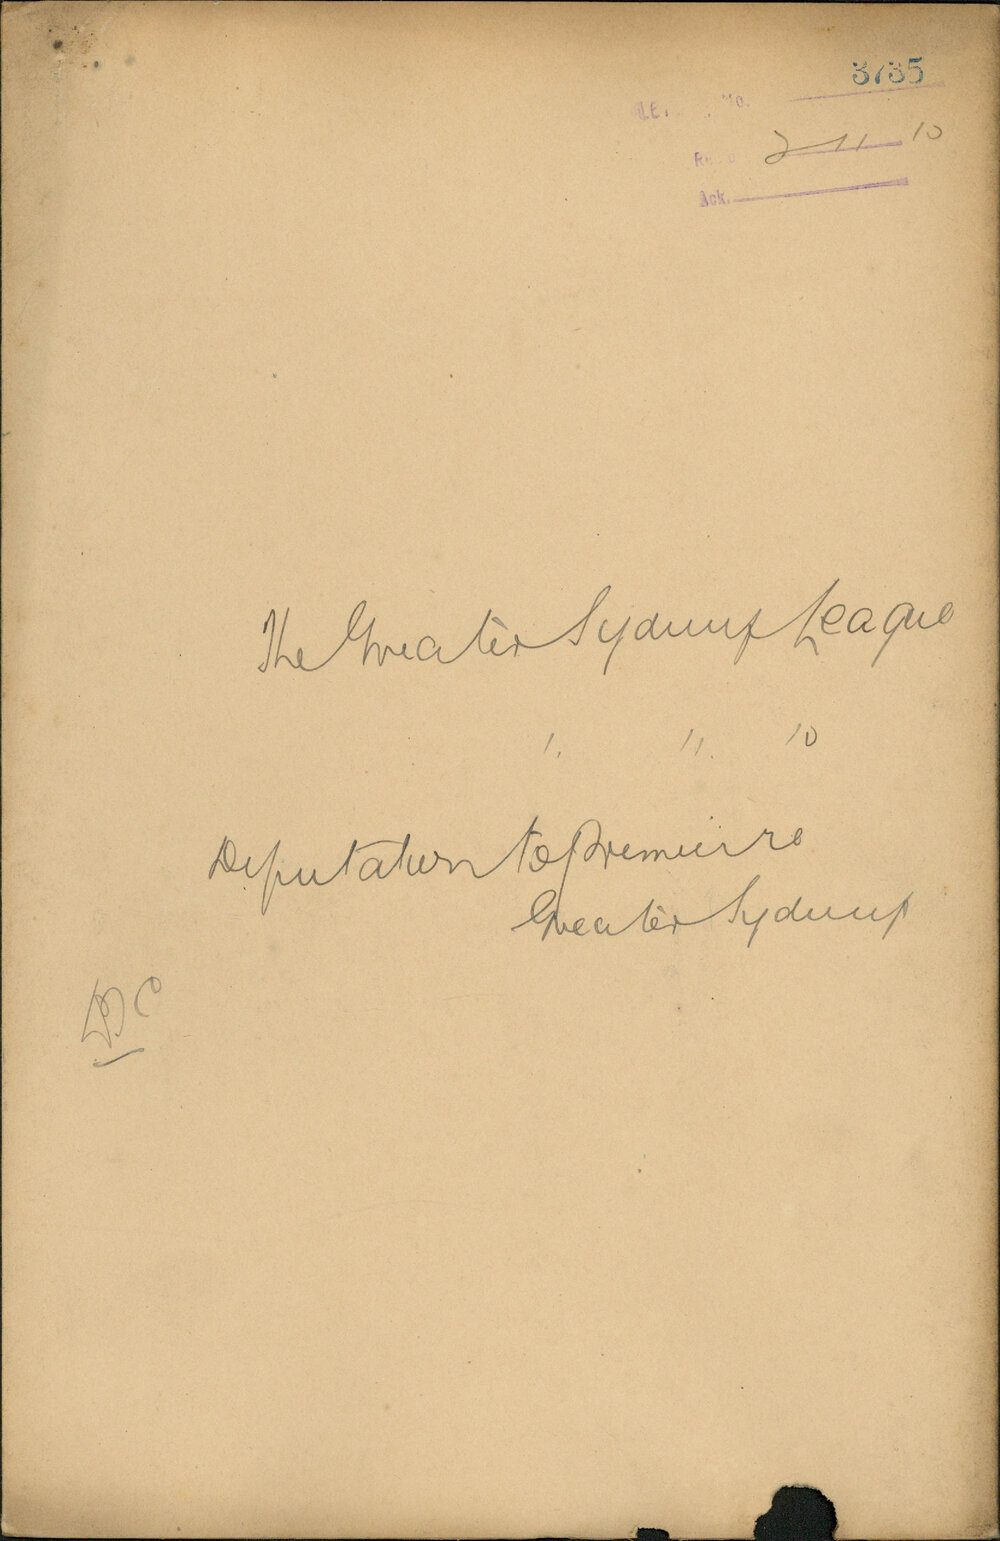 3735
No.
2 11 10
Ack.
The Greater Sydney League
1. 11. 10
Deputation to Premier re
Greater Sydney